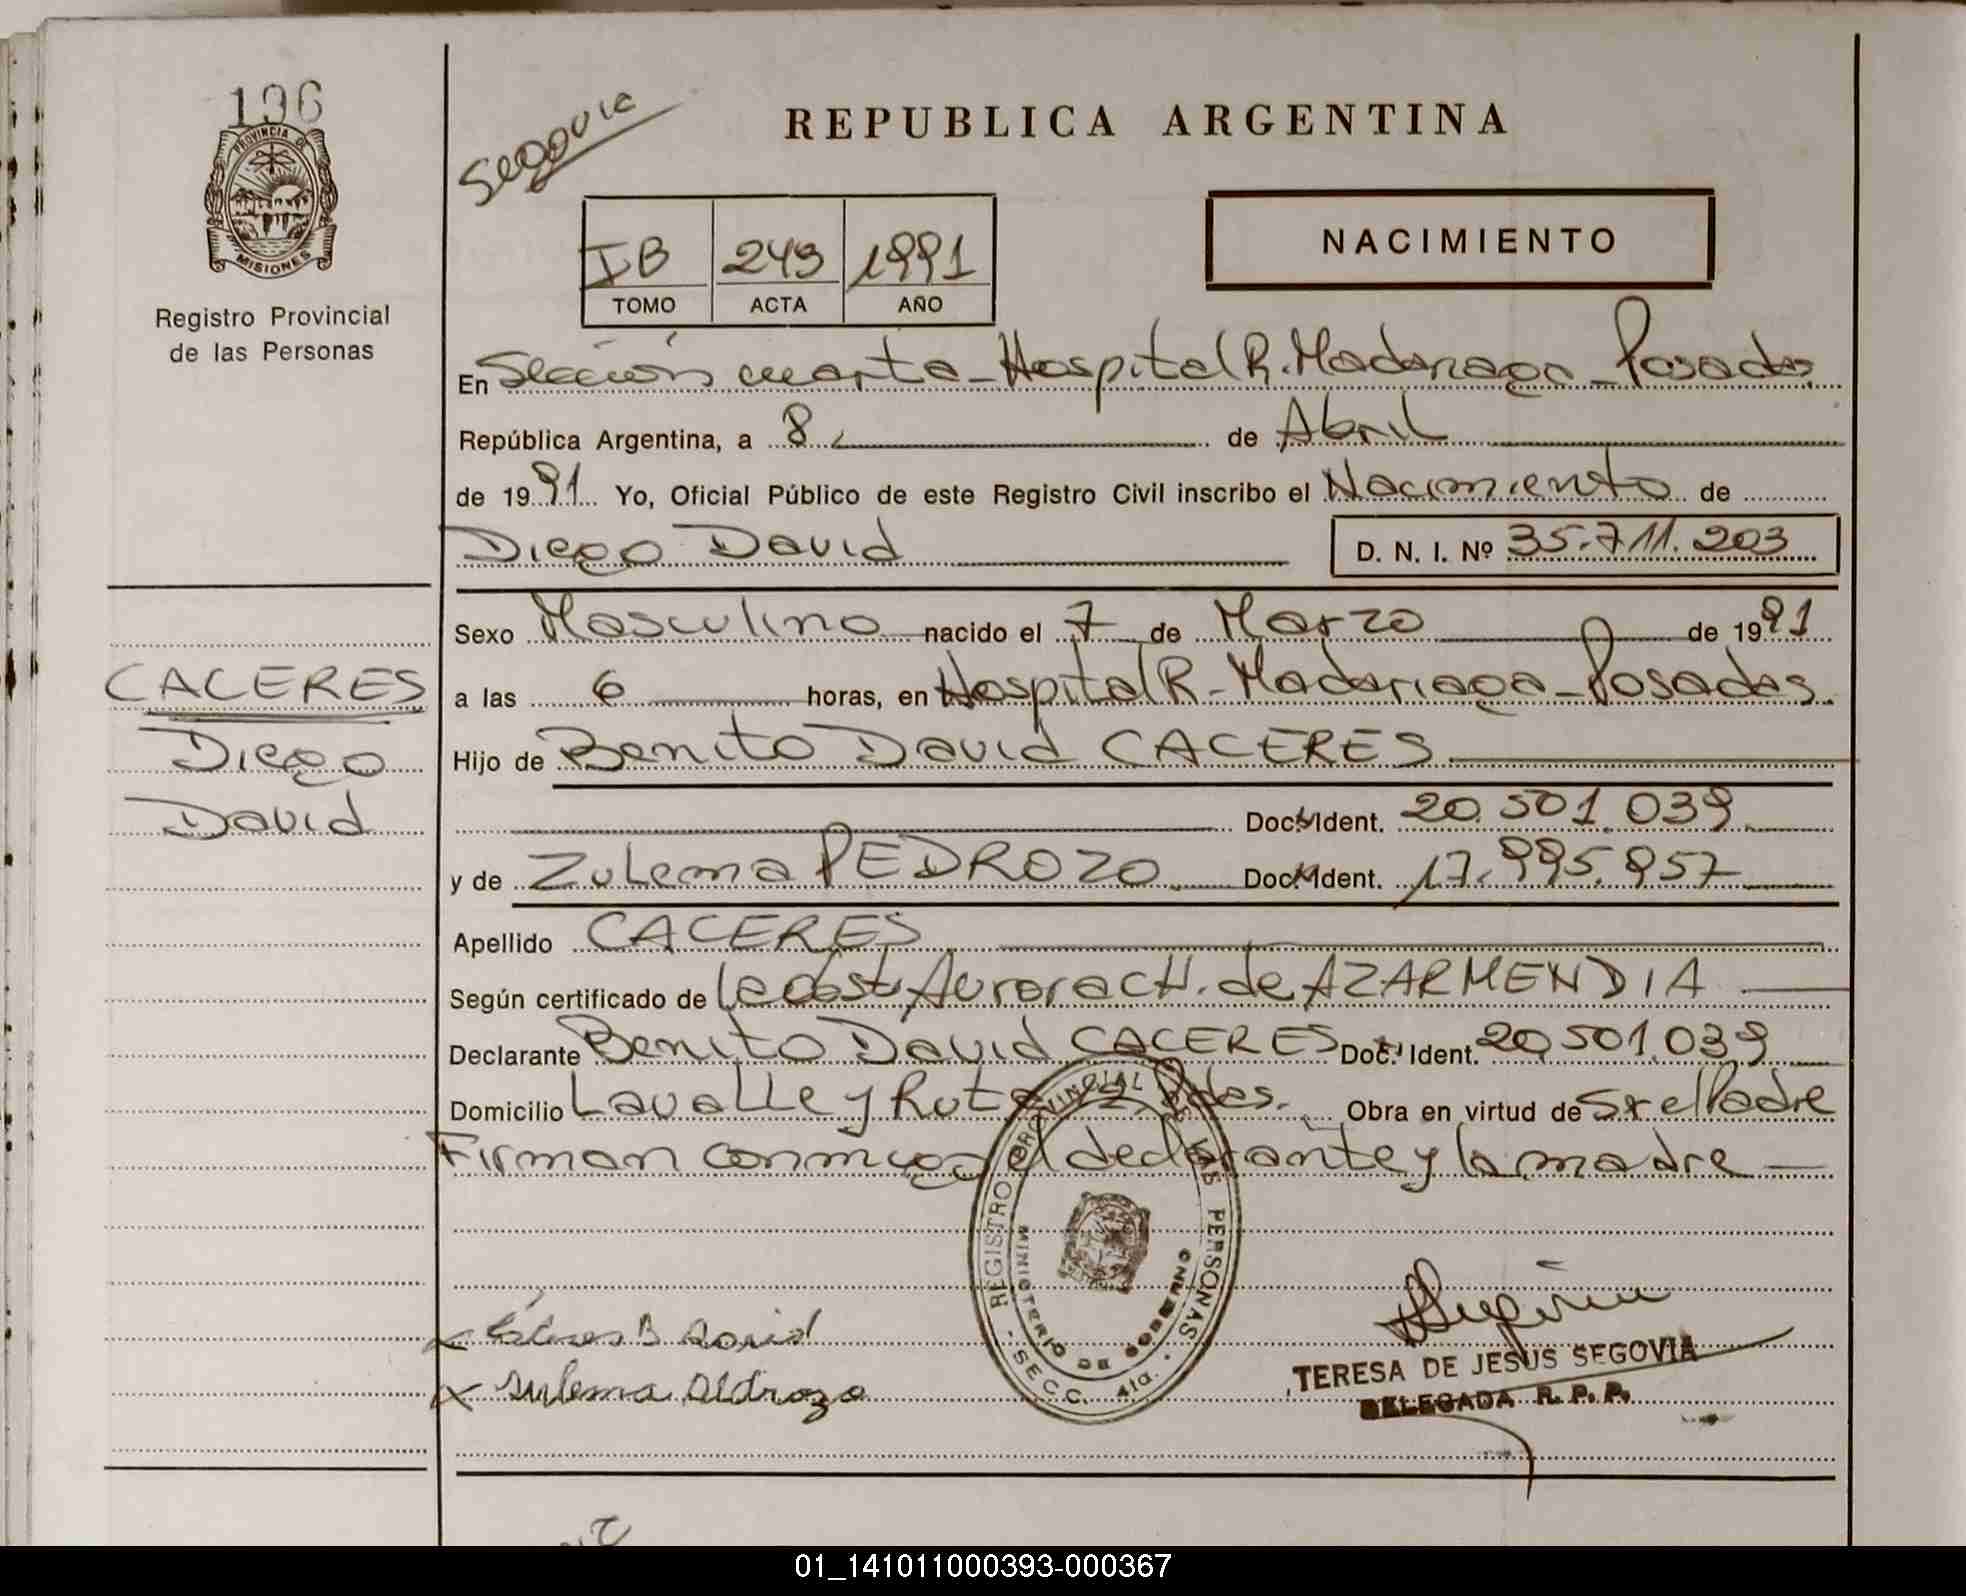 196
PROVINCIA DE
MISIONES
Registro Provincial
de las Personas
Segovia
REPUBLICA ARGENTINA
IB 243 1991
TOMO ACTA AÑO
NACIMIENTO
En Sección cuarta - Hospital R. Madariaga - Posadas
República Argentina, a 8 de Abril
de 1991 Yo, Oficial Público de este Registro Civil inscribo el Nacimiento de
Diego David
D. N. I. Nº 35.711.203
Sexo Masculino nacido el 7 de Marzo de 1991
a las 6 horas, en Hospital R. Madariaga - Posadas.
Hijo de Benito David CACERES
Doc. Ident. 20.501.039
y de Zulema PEDROZO Doc. Ident. 17.995.957
Apellido CACERES
Según certificado de la Obst. Aurora C H. de AZARMENDIA
Declarante Benito David CACERES Doc. Ident. 20.501.039
Domicilio Lavalle y Ruta Pdas. Obra en virtud de Sr el Padre
Firman conmigo el declarante y la madre
CACERES
Diego
David
REGISTRO PROVINCIAL DE LAS PERSONAS
MINISTERIO DE GOBIERNO
SECC. 4ta.
x Cáceres B David
x Zulema Pedrozo
TERESA DE JESUS SEGOVIA
DELEGADA R. P. P.
01_141011000393-000367